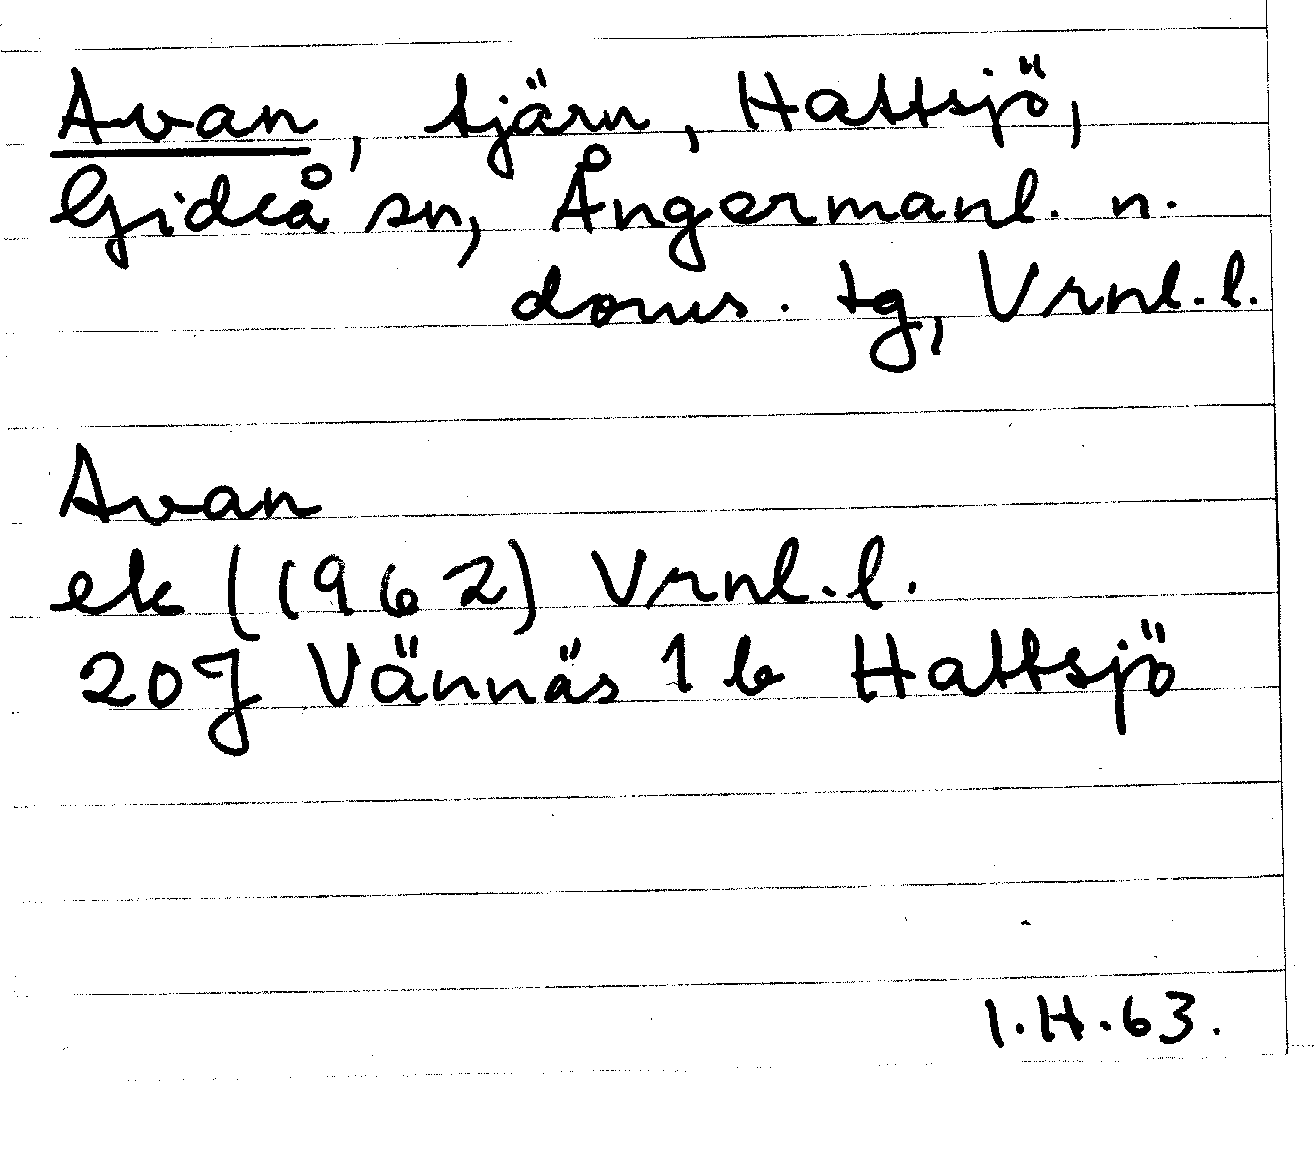 Avan, tjärn, Hattsjö,
Gideå sn, Ångermanl. n.
doms. tg, Vrnl. l.
Avan
ek (1962) Vrnl. l.
20J Vännäs 1 b Hattsjö
I.H.63.